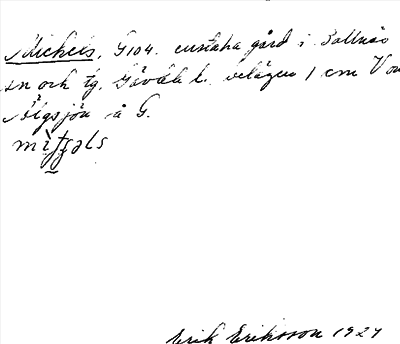 Mickels, G104. enstaka gård i Bollnäs
sn och tg. Gävle l. belägen 1 cm V om
Älgsjön å G.
Erik Eriksson 1927